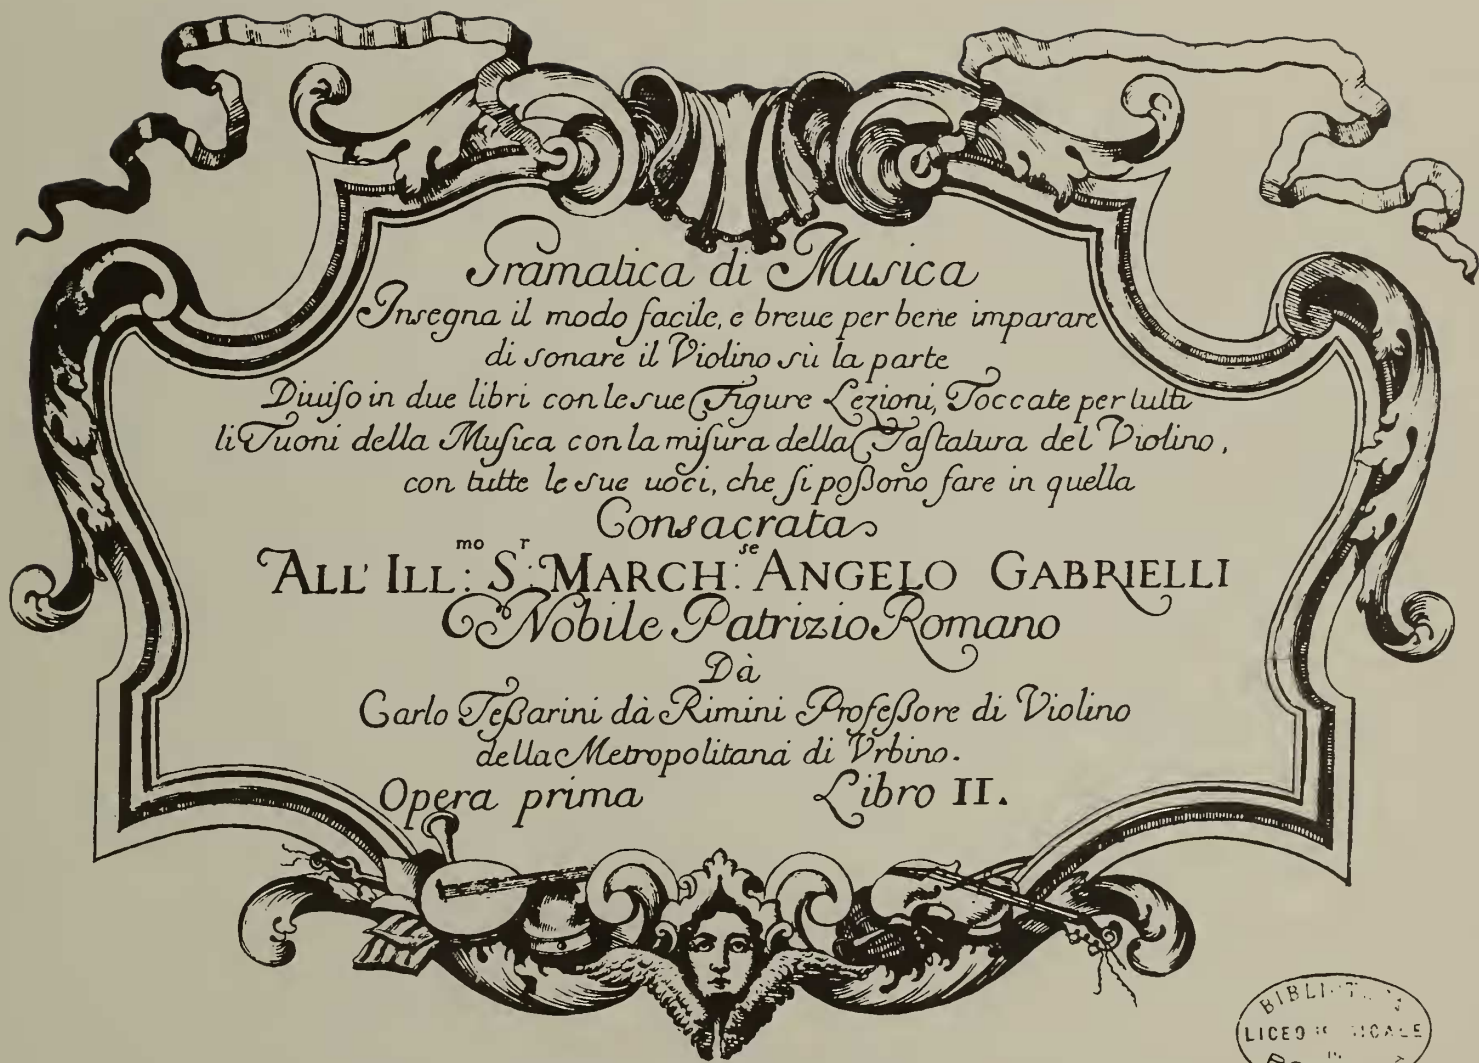 Gramatica di Musica
Insegna il modo facile, e breue per bene imparare
di sonare il Violino sù la parte
Diuiſo in due libri con le sue Figure Lezioni, Toccate per tutti
li Tuoni della Muſica con la miſura della Taſtatura del Violino,
con tutte le sue uoci, che ſi poßono fare in quella
Consacrata
ALL' ILL:mo S:r MARCH:se ANGELO GABRIELLI
Nobile Patrizio Romano
Dà
Carlo Teßarini dà Rimini Profeßore di Violino
della Metropolitana di Vrbino.
Opera prima Libro II.
LICEO